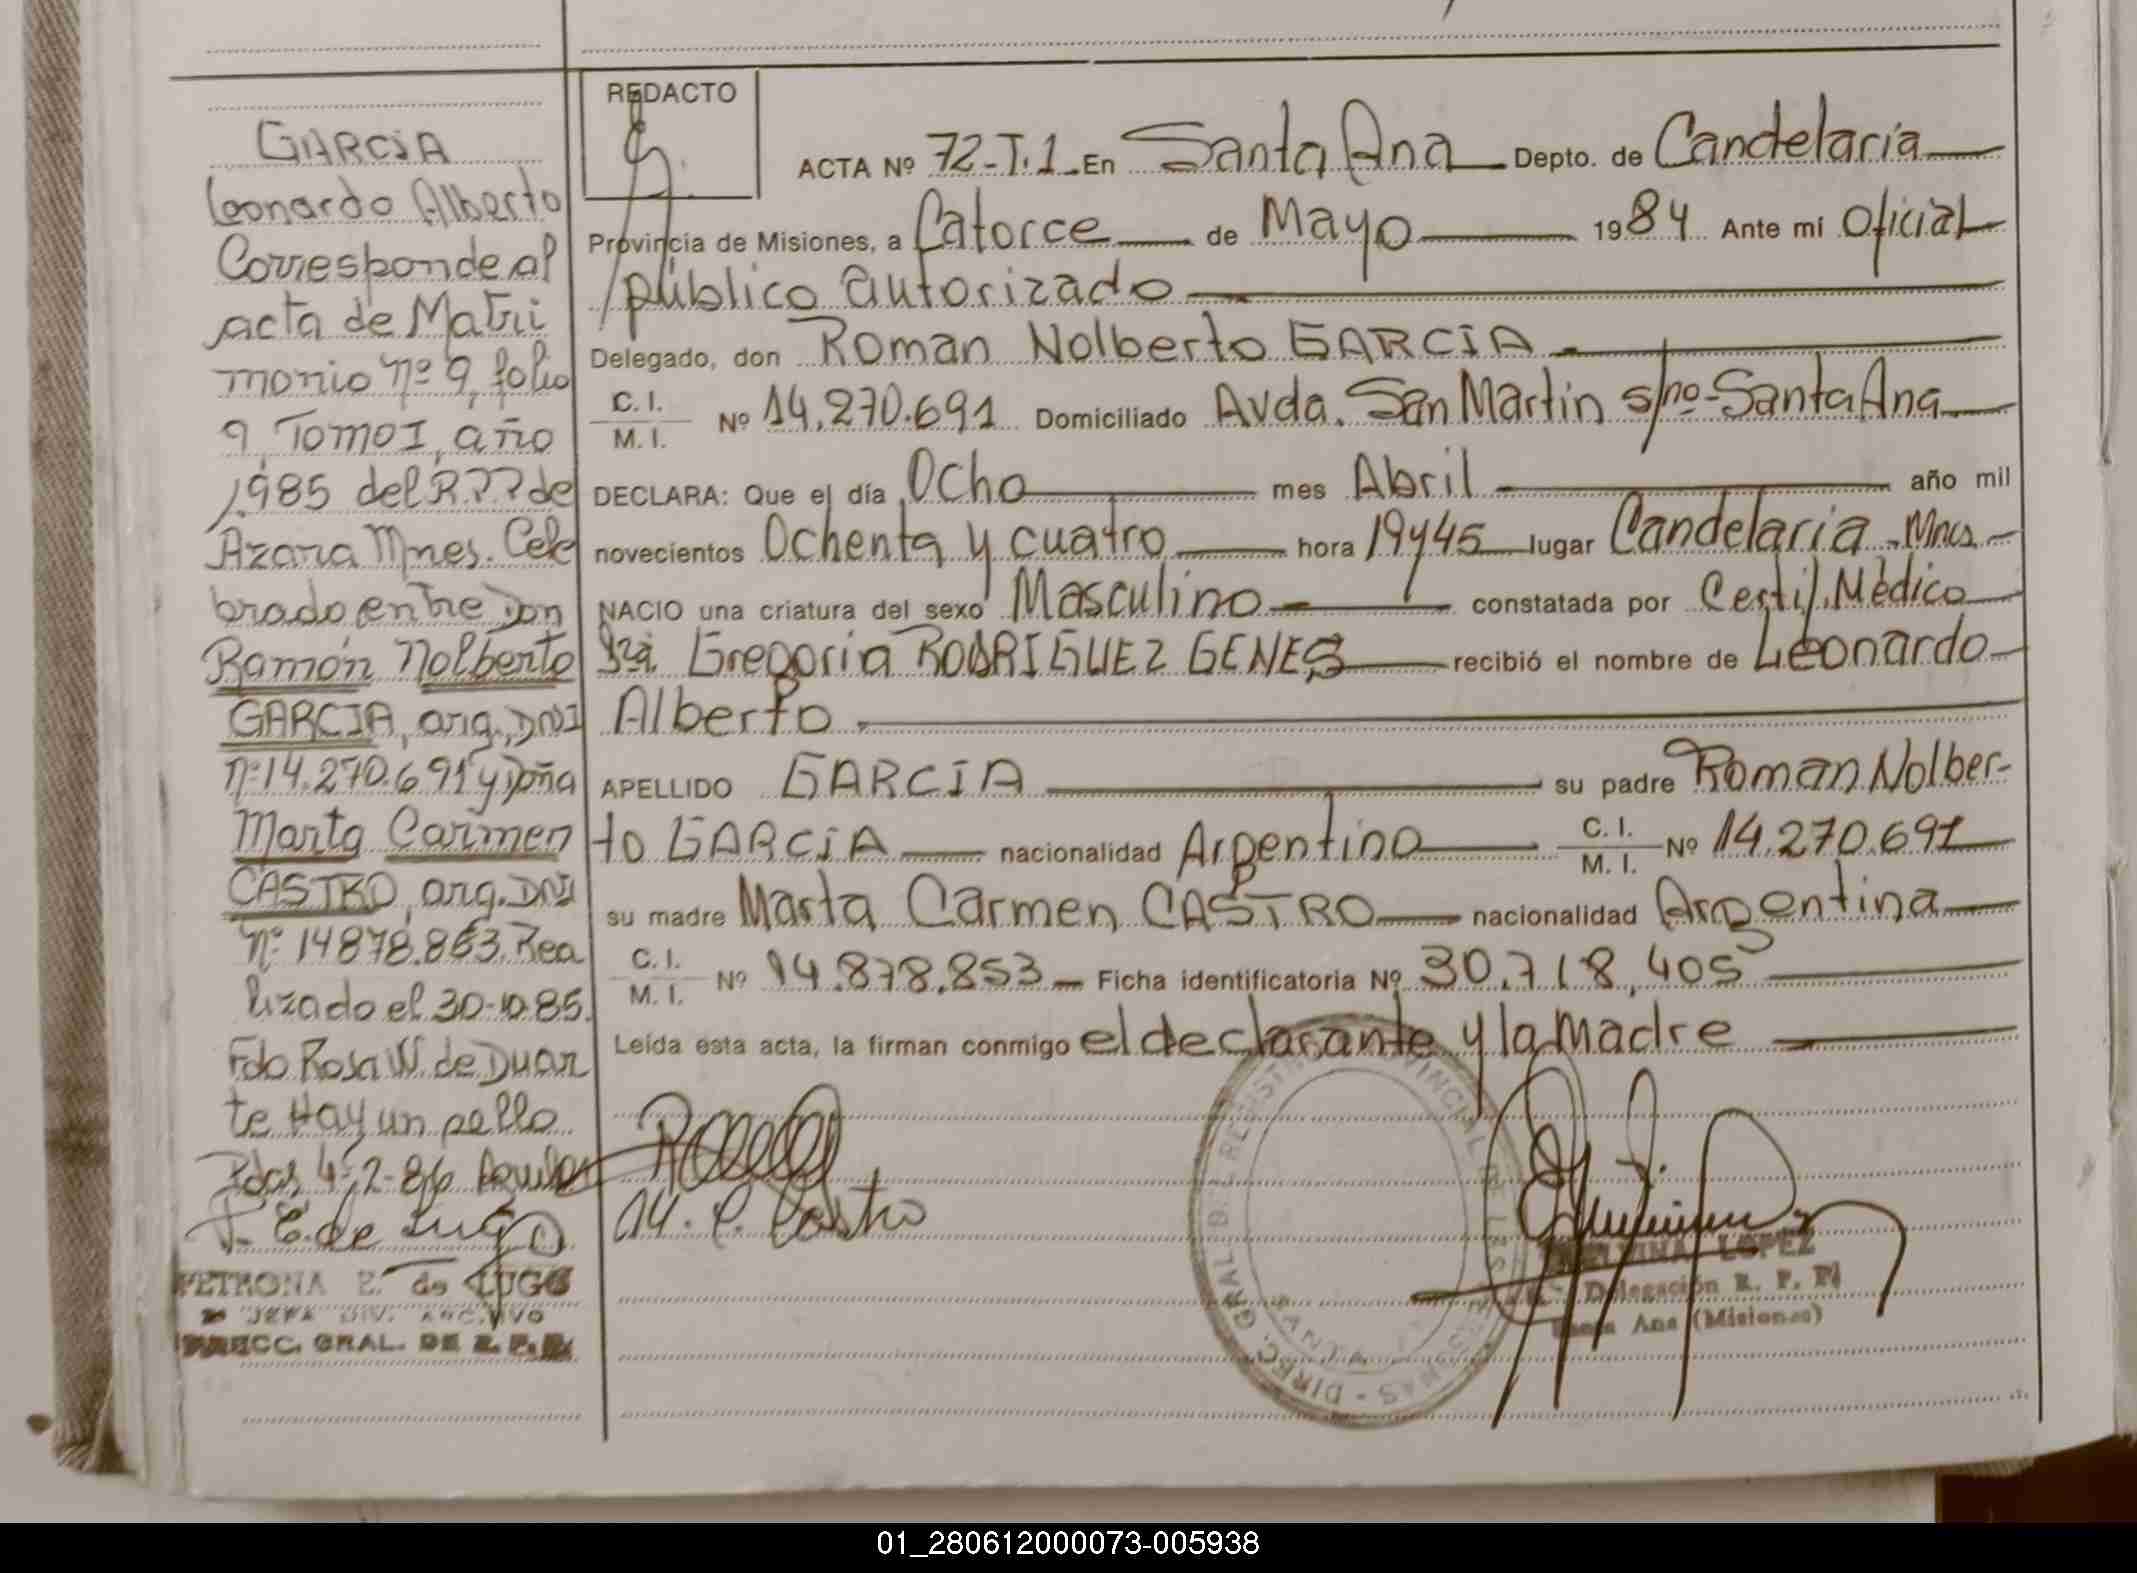 GARCIA
Leonardo Alberto
Corresponde al
acta de Matri
monio nº 9, folio
9, Tomo I, año
1.985 del R.P.P. de
Azara Mnes. Cele
brado entre Don
Ramón Nolberto
GARCIA, arg., DNI
Nº 14.270.691 y Doña
Marta Carmen
CASTRO, arg. DNI
Nº 14878.853. Rea
lizado el 30-10-85.
Fdo Rosa W. de Duar
te Hay un sello
Pdas, 4-2-86
P. E. de Lugo
PETRONA E. de LUGO
JEFA DIV. ARCHIVO
DIRECC. GRAL. DE R. P. P.
REDACTO
ACTA Nº 72-T.1. En Santa Ana Depto. de Candelaria
Provincia de Misiones, a Catorce de Mayo 1984 Ante mí Oficial
público autorizado
Delegado, don Roman Nolberto GARCIA
C. I. / M. I. Nº 14.270.691 Domiciliado Avda. San Martin s/nº - Santa Ana
DECLARA: Que el día Ocho mes Abril año mil
novecientos Ochenta y cuatro hora 19y45 lugar Candelaria - Mnes -
NACIO una criatura del sexo Masculino constatada por Certif. Mèdico
Gregoria RODRIGUEZ GENES recibió el nombre de Leonardo
Alberto
APELLIDO GARCIA su padre Roman Nolber-
to GARCIA nacionalidad Argentino C. I. / M. I. Nº 14.270.691
su madre Marta Carmen CASTRO nacionalidad Argentina
C. I. / M. I. Nº 14.878.853 Ficha identificatoria Nº 30.718.405
Leída esta acta, la firman conmigo el declarante y la Madre
M. C. Castro
LOPEZ
Delegación R. P. P.
Santa Ana (Misiones)
01_280612000073-005938